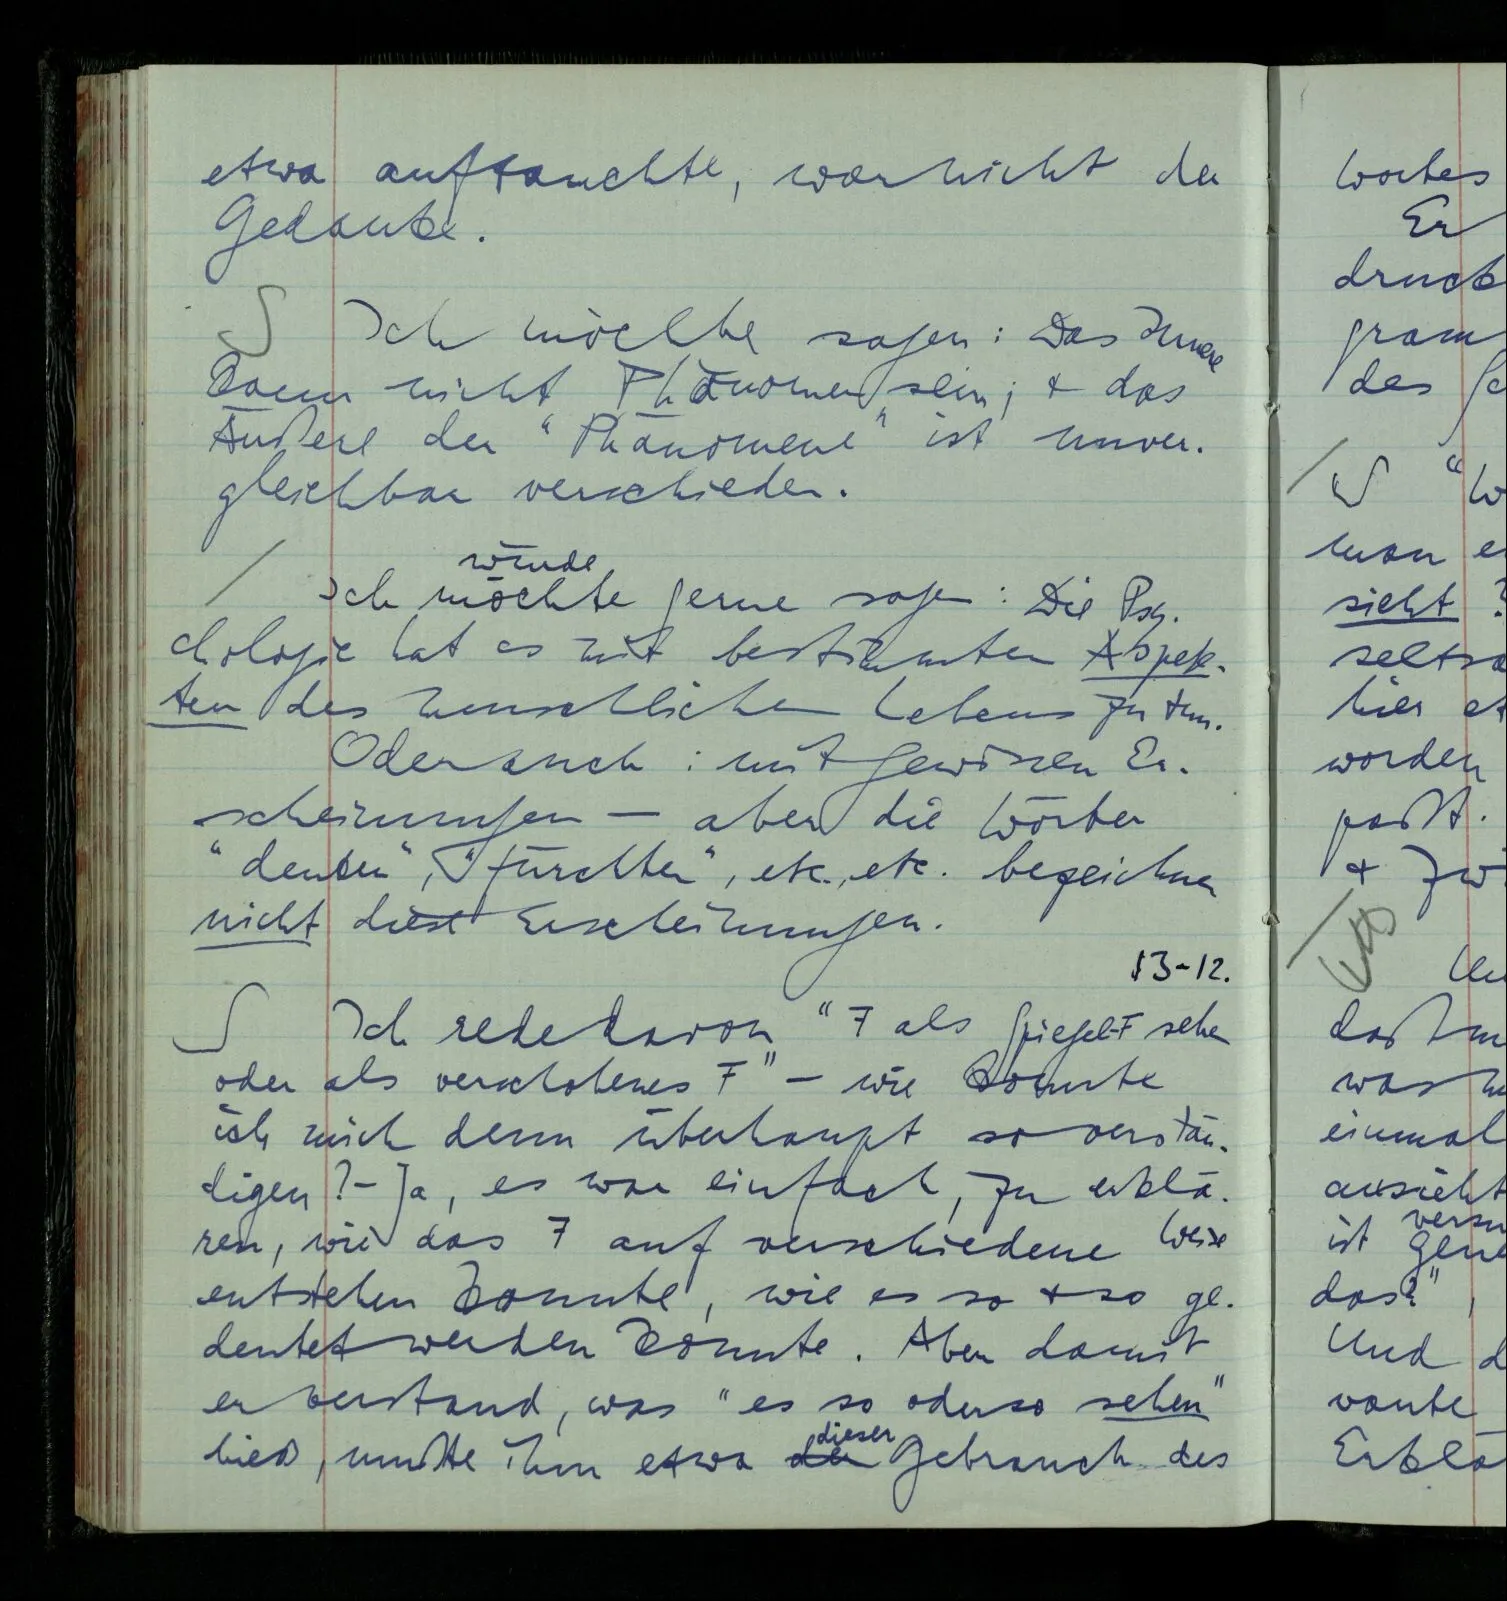 etwa auftauchte, war nicht der
Gedanke.
S Ich möchte sagen: Das Innere
kann nicht Phänomen sein; + das
Äußere der "Phänomene" ist unver-
gleichbar verschieden.
/ würde
Ich möchte gerne sagen: Die Psy-
chologie hat es mit bestimmten Aspek-
ten des menschlichen Lebens zu tun.
Oder auch: mit gewissen Er-
scheinungen — aber die Wörter
"denken", "fürchten", etc., etc. bezeichnen
nicht diese Erscheinungen.
13-12.
S Ich rede davon "F als Spiegel-F sehen
oder als verschobenes F" — wie konnte
ich mich denn überhaupt so verstän-
digen? – Ja, es war einfach, zu erklä-
ren, wie das F auf verschiedene Weise
entstehen konnte, wie es so + so ge-
deutet werden könnte. Aber damit
er verstand, was "es so oder so sehen"
dieser
hieß, mußte ihm etwa der Gebrauch des
Wortes
Er
druck
gram
des
/ S "W
man e
sieht ?
seltsa
hier et
worden
paßt.
+ zw
Un
daß m
was
einmal
aussieht
versu
ist gene
das?",
Und d
vante
Erklä